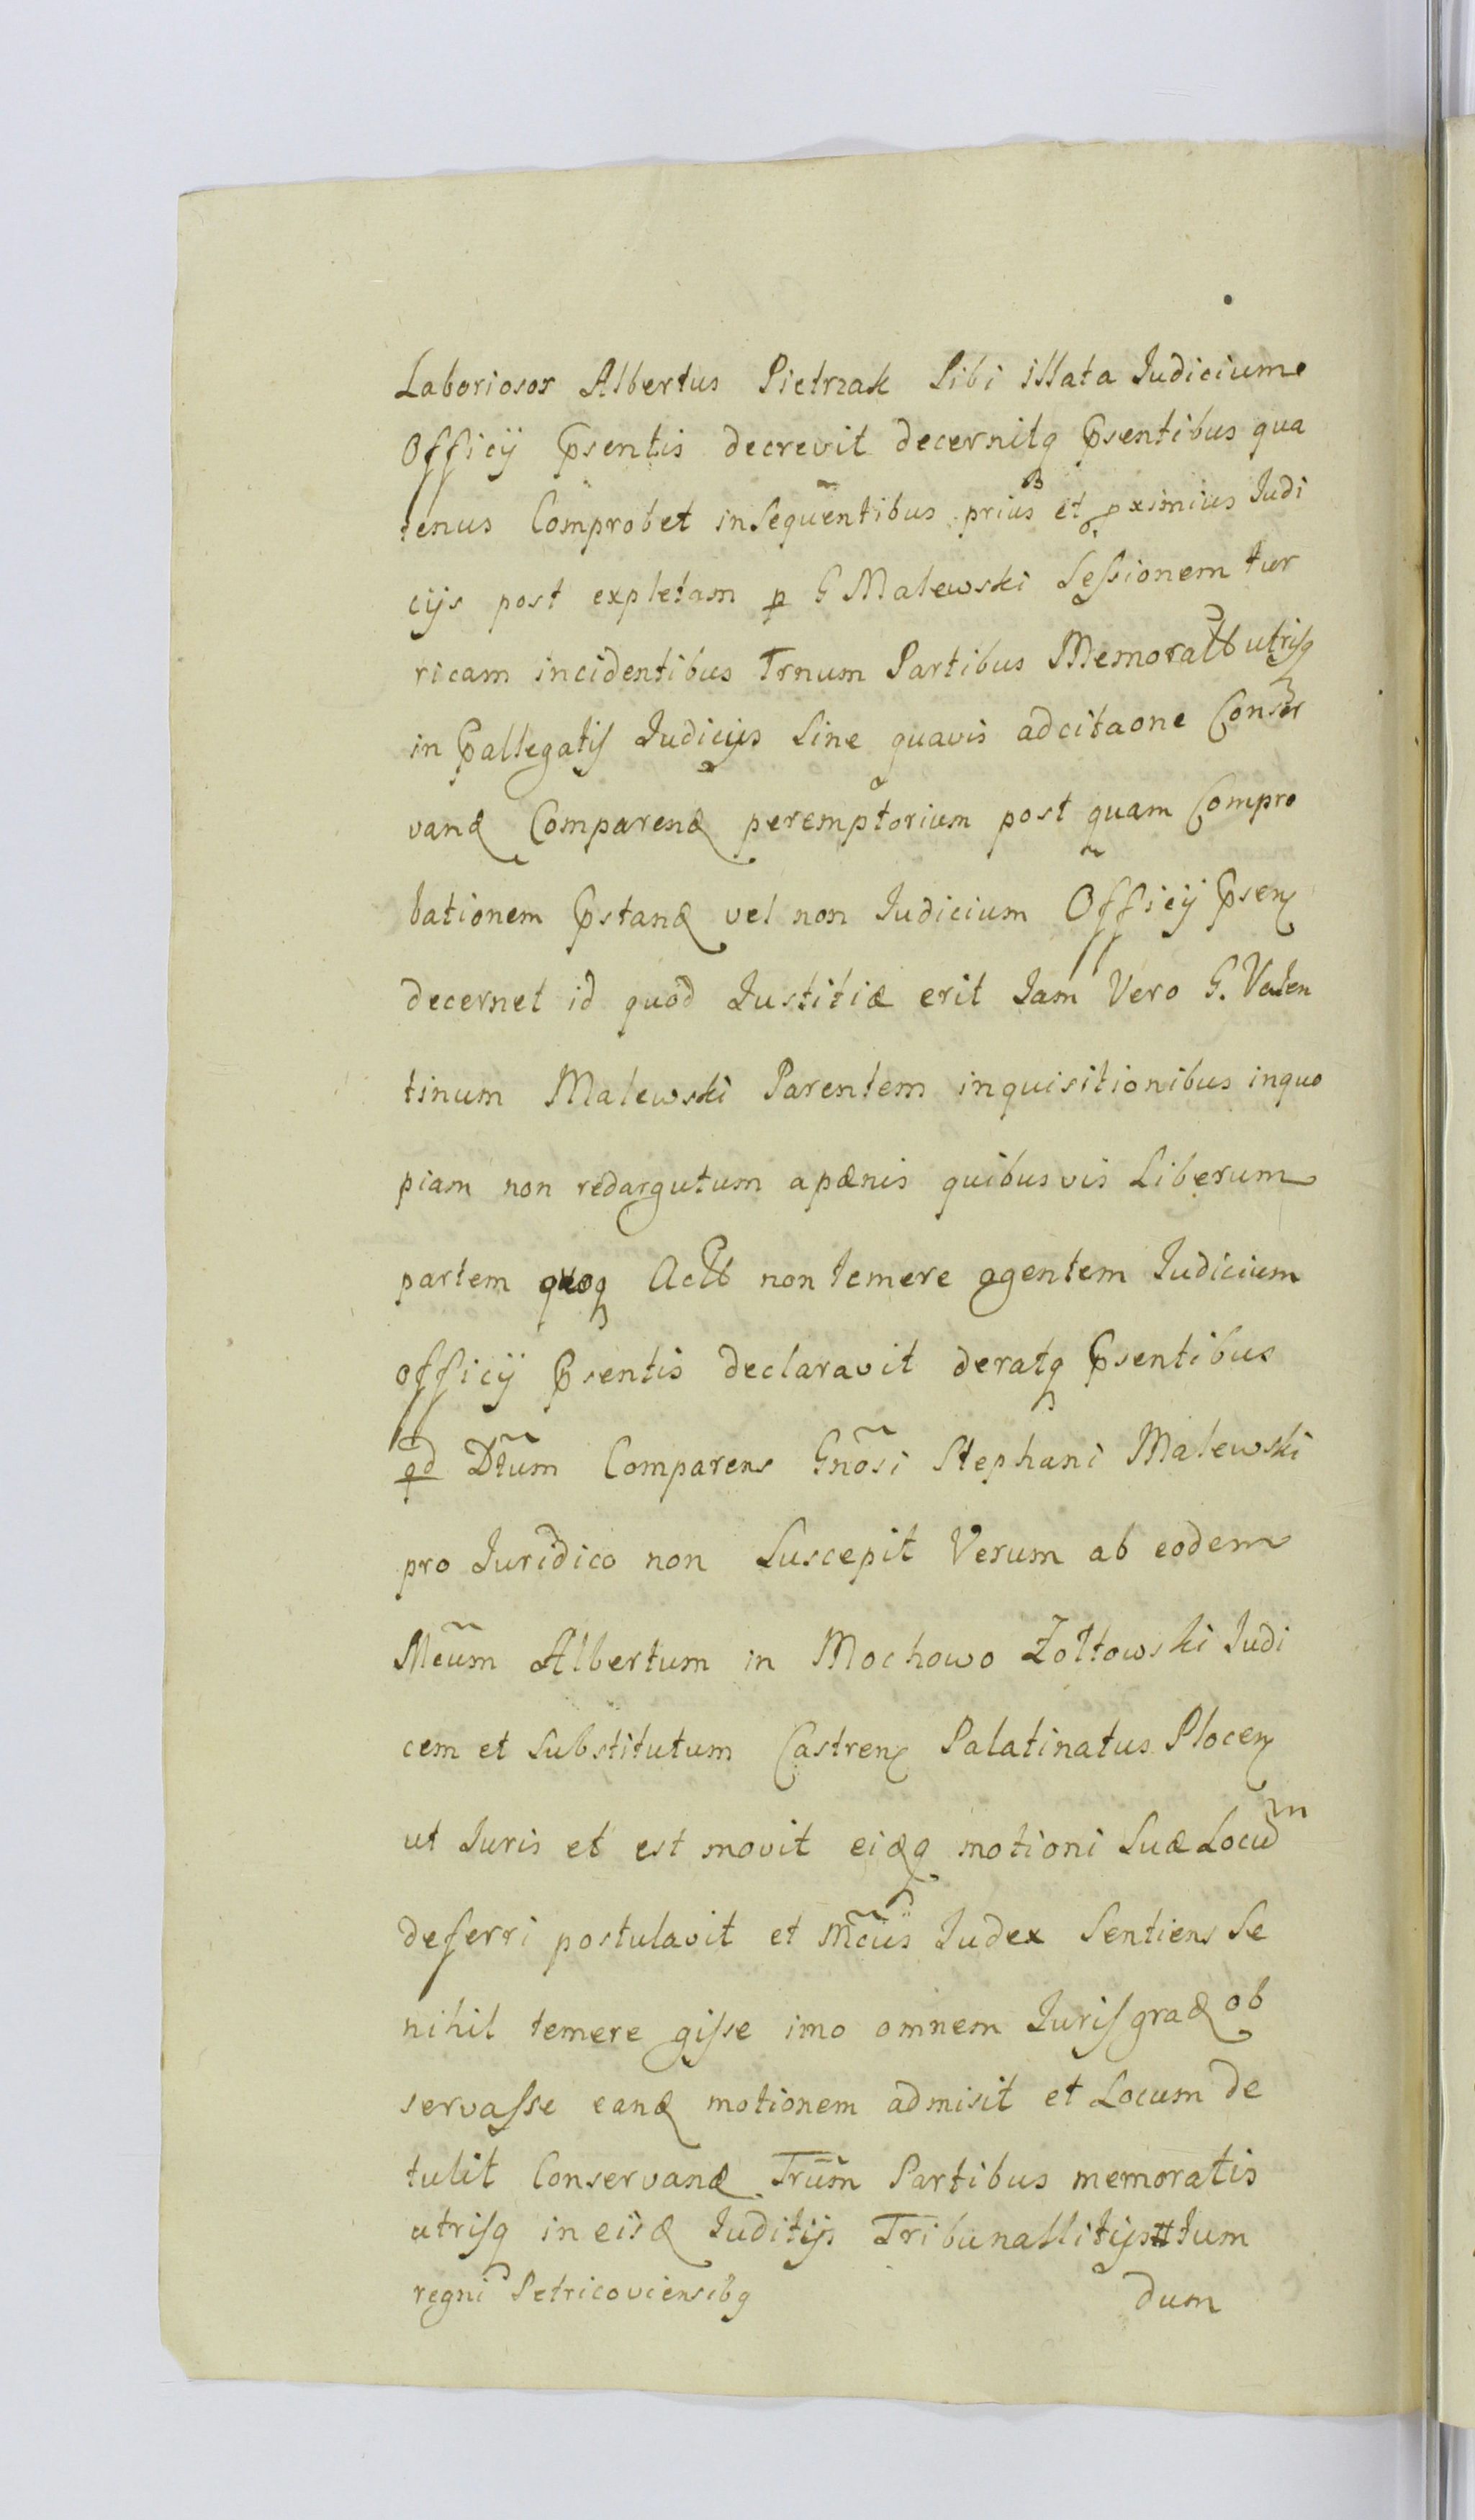 Laboriosos Albertus Pietrzak Sibi illata Judicium
Officij Pṡentis decrevit decernitq Pṡentibus qua
tenus Comprobet in Sequentibus prius et pximius Judi
cijs post expletam p G Malewski Sessionem tur
ricam incidentibus Trnum Partibus Memoratb utrisq
in Pallegatis Judicijs Sine quavis adcitaone Conser
vand Comparend peremptorium post quam Compro
bationem Pstand vel non Judicium Officij Psen
decernet id quod Justitiæ erit Jam Vero G. Valen
tinum Malewski Parentem inquisitionibus inquo
piam non redargutum apænis quibusvis Liberum
partem quoq Actb non temere agentem Judicium
officij Psentis declaravit deratq Psentibus
qd Dtum Comparens Gnosi Stephani Malewski
pro Juridico non Suscepit Verum ab eodem
Mcum Albertum in Mochowo Zołtowski Judi
cem et Substitutum Castren Palatinatus Plocen
ut Juris et est movit eidq motioni Suæ Locum
deferri postulavit et Mcus Judex Sentiens Se
nihil temere gisse imo omnem Jurisgrad ob
servasse eand motionem admisit et Locum de
tulit Conservand Trum Partibus memoratis
utrisq in eisd Juditijs Tribunallitijs tum
regni Petricoviensibq
dum